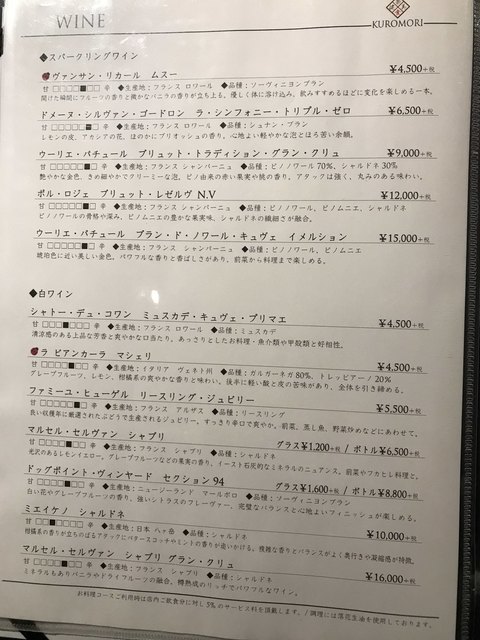 WINE
KUROMORI
◆スパークリングワイン
ヴァンサン・リカール ムスー ¥4,500+税
甘 □□□□□■□□ 辛 ◆生産地:フランス ロワール ◆品種:ソーヴィニヨンブラン
開けた瞬間にフルーツの香りと微かなバニラの香りが立ち上る。優しく体に溶け込み、飲みすすめるほどに変化を楽しめる一本。
ドメーヌ・シルヴァン・ゴードロン ラ・シンフォニー・トリプル・ゼロ ¥6,500+税
◆生産地:フランス ロワール ◆品種:シュナン・ブラン
レモンの皮、アカシアの花、ほのかにブリオッシュの香り。心地よい軽やかな泡とほろ苦い余韻。
ウーリエ・パチュール ブリュット・トラディション・グラン・クリュ ¥9,000+税
◆生産地:フランス シャンパーニュ ◆品種:ピノノワール 70%、シャルドネ 30%
艶やかな金色、きの細やかでクリーミーな泡。ピノ由来の赤い果実や桃の香り。アタックは強く、丸みのある味わい。
ポル・ロジェ ブリュット・レゼルヴ N.V ¥12,000+税
◆生産地:フランス シャンパーニュ ◆品種:ピノノワール、ピノムニエ、シャルドネ
ピノノワールの骨格や深み、ピノムニエの豊かな果実味、シャルドネの繊細さが融合。
ウーリエ・パチュール ブラン・ド・ノワール・キュヴェ イメルション ¥15,000+税
◆生産地:フランス シャンパーニュ ◆品種:ピノノワール、ピノムニエ
琥珀色に近い美しい金色。パワフルな香りと香ばしさがあり、前菜から料理まで楽しめる。
◆白ワイン
シャトー・デュ・コワン ミュスカデ・キュヴェ・プリマエ ¥4,500+税
◆生産地:フランス ロワール ◆品種:ミュスカデ
清涼感のある上品な芳香と爽やかな口当たり。あっさりとしたお料理・魚介類や甲殻類と好相性。
ラ ビアンカーラ マシェリ ¥4,500+税
◆生産地:イタリア ヴェネト州 ◆品種:ガルガーネガ 80%、トレッビアーノ 20%
グレープフルーツ、レモン、柑橘系の爽やかな香りと味わい。後半に軽い酸と皮の苦味があり、全体を引き締める。
ファミーユ・ヒューゲル リースリング・ジュビリー ¥5,500+税
◆生産地:フランス アルザス ◆品種:リースリング
良い収穫年に厳選されたぶどうで生産されるジュビリー。すっきり辛口で爽やか。前菜、蒸し魚、野菜炒めなどにあわせて。
マルセル・セルヴァン シャブリ グラス¥1,200+税 / ボトル¥6,500+税
◆生産地:フランス シャブリ ◆品種:シャルドネ
光沢のあるレモンイエロー。グレープフルーツなどの果実の香り、イースト石灰的なミネラルのニュアンス。前菜やフカヒレと。
ドッグポイント・ヴィンヤード セクション 94 グラス¥1,600+税 / ボトル¥8,800+税
◆生産地:ニュージーランド マールボロ ◆品種:ソーヴィニヨンブラン
白い花やグレープフルーツの香り。強いシトラスのフレーヴァー、完璧なバランスと心地よいフィニッシュが楽しめる。
ミエイケノ シャルドネ ¥10,000+税
◆生産地:日本 八ヶ岳 ◆品種:シャルドネ
柑橘系の香りが立ちのぼるアタックにバタースコッチやミントの香りが追いかける。複雑な香りとバランスがよく奥行きや凝縮感が特徴。
マルセル・セルヴァン シャブリ グラン・クリュ ¥16,000+税
◆生産地:フランス シャブリ ◆品種:シャルドネ
ミネラルもありバニラやドライフルーツの融合。樽熟成のリッチでパワフルなワイン。
お料理コースご利用時は店内ご飲食分に対し5%のサービス料を頂戴します。/調理には落花生油を使用しております。